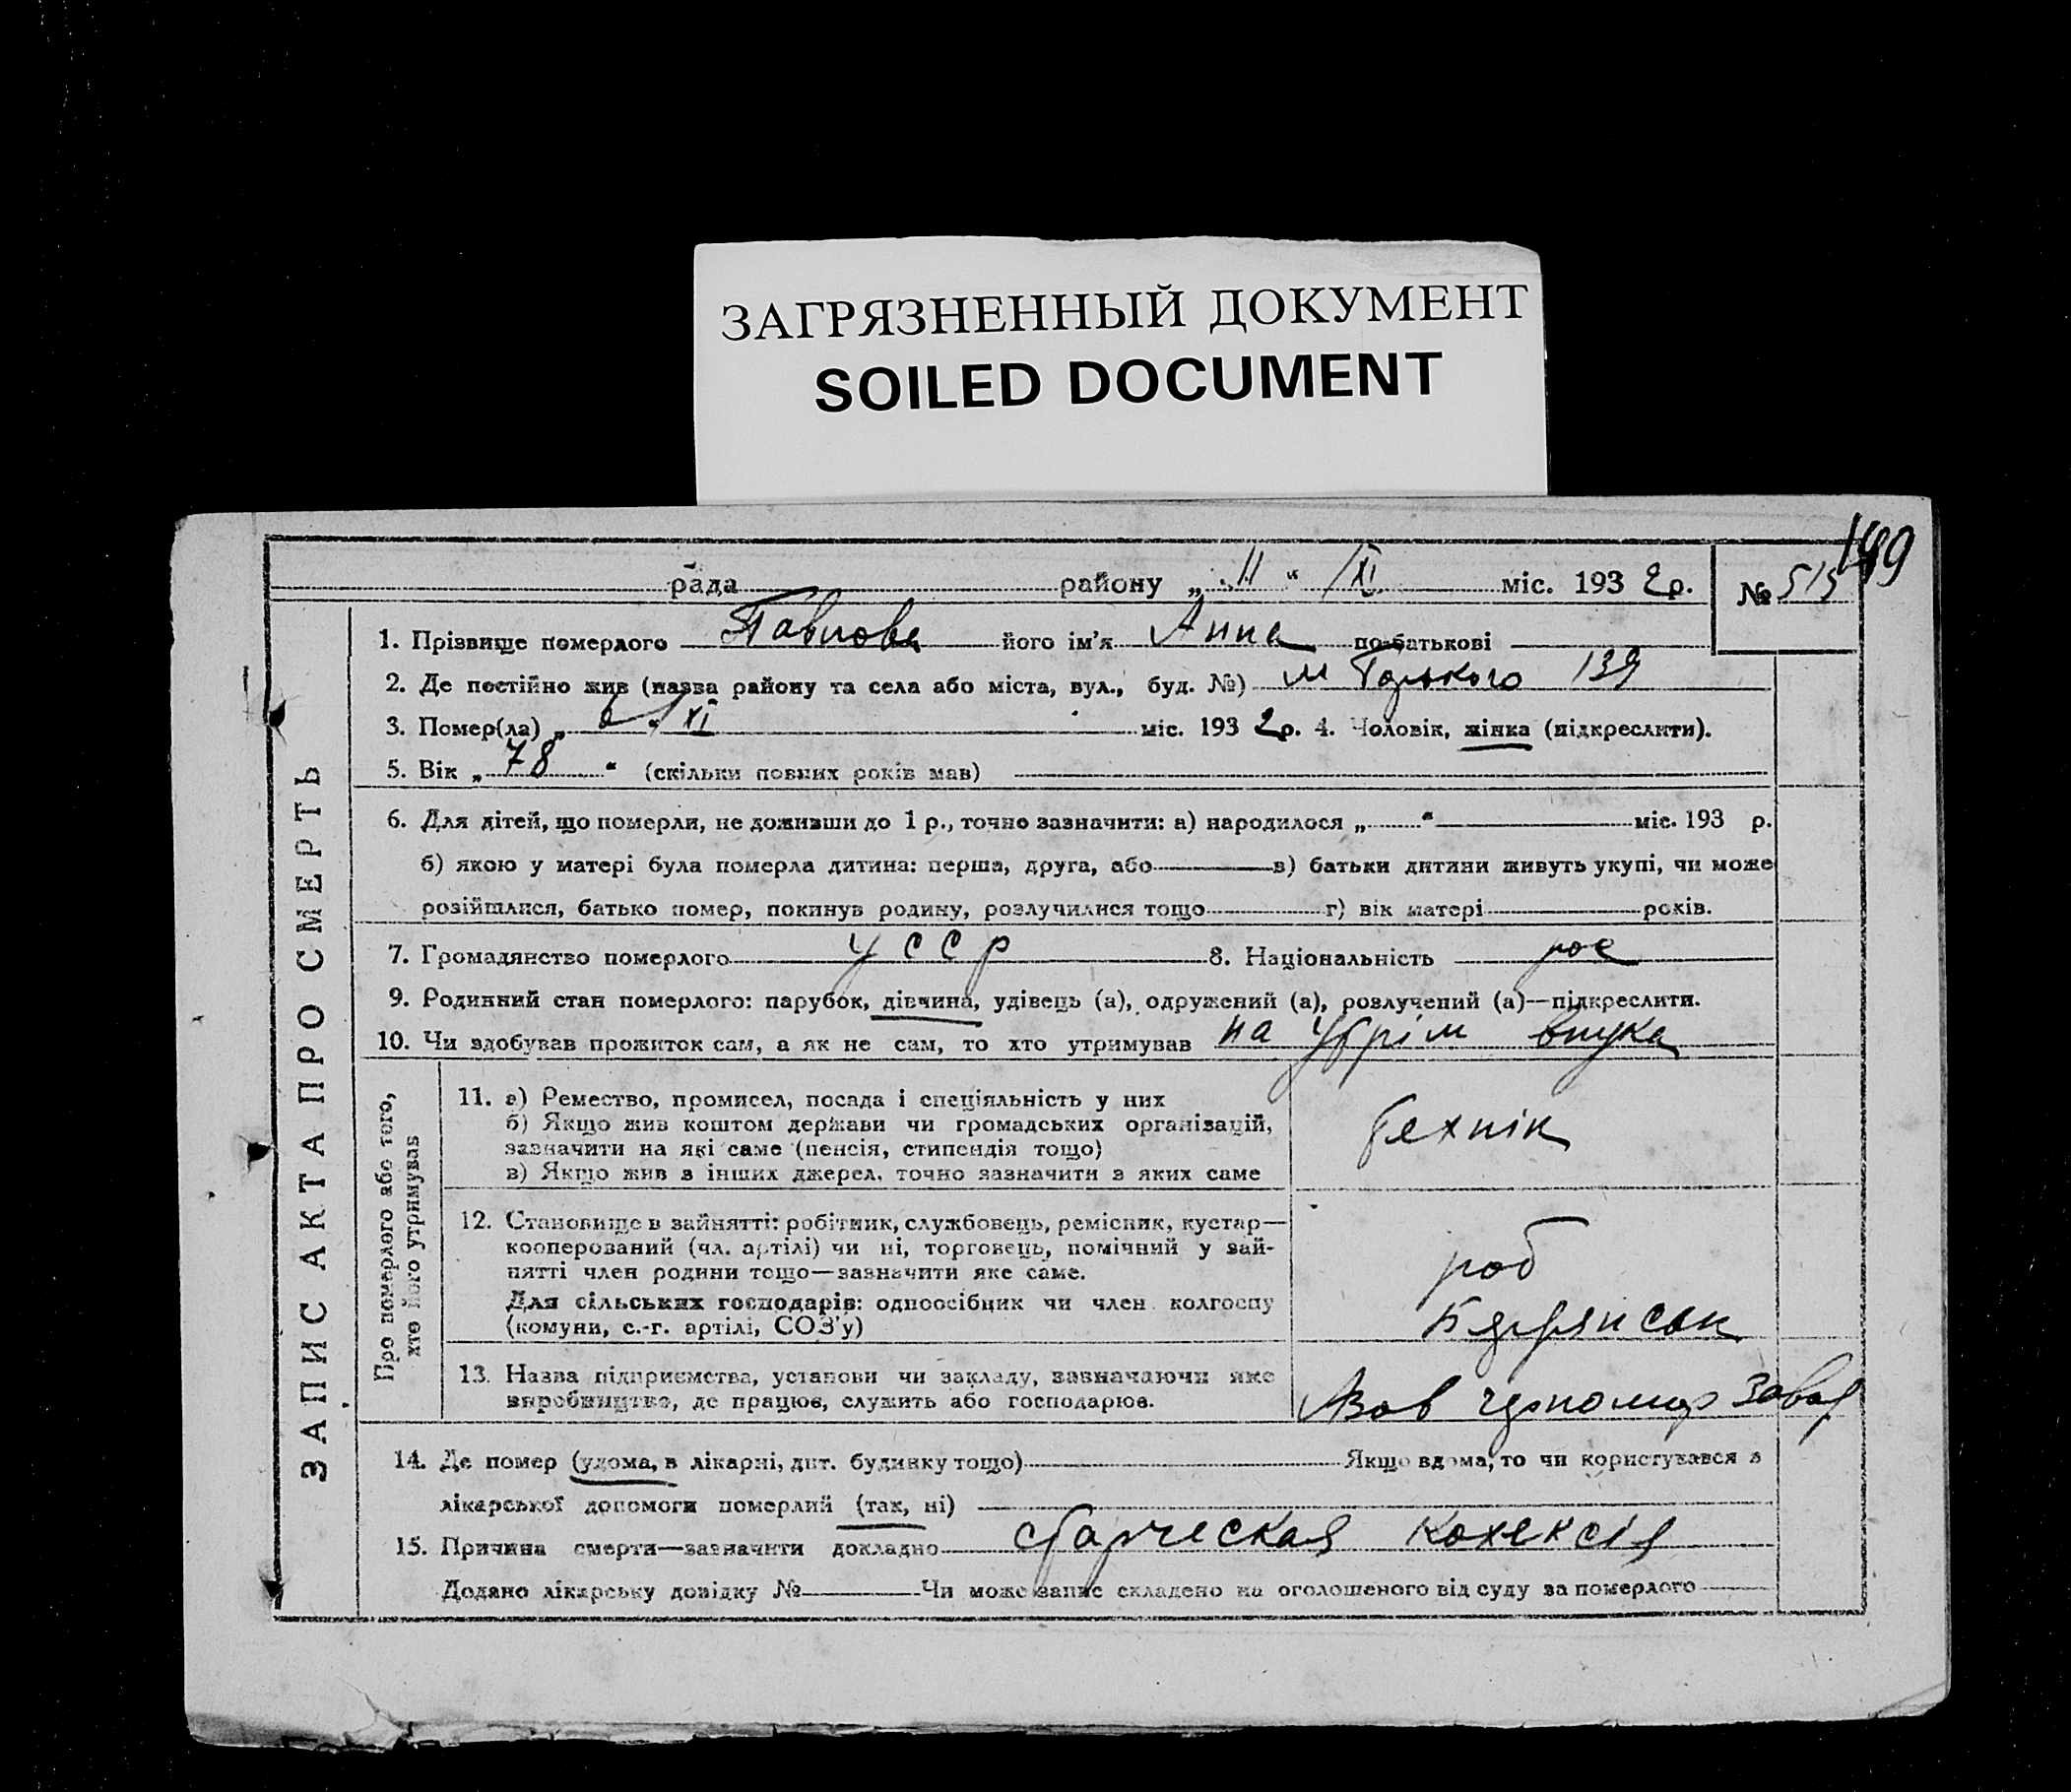 ЗАГРЯЗНЕННЫЙ ДОКУМЕНТ
SOILED DOCUMENT
рада району „ 11 “ XI міс. 193 2 р. № 515
1. Прізвище померлого Павлова його ім'я Анна по-батькові
2. Де постійно жив (назва району та села або міста, вул., буд. №) м Горького 139
3. Помер(ла) „ 6 “ XI міс. 193 2 р. 4. Чоловік, жінка (підкреслити).
5. Вік „ 78 “ (скільки повних років мав)
6. Для дітей, що померли, не доживши до 1 р., точно зазначити: а) народилося „ “ міс. 193 р.
б) якою у матері була померла дитина: перша, друга, або в) батьки дитини живуть укупі, чи може
розійшлися, батько помер, покинув родину, розлучилися тощо г) вік матері років.
7. Громадянство померлого УССР 8. Національність рос
9. Родинний стан померлого: парубок, дівчина, удівець (а), одружений (а), розлучений (а)—підкреслити.
10. Чи здобував прожиток сам, а як не сам, то хто утримував на утрім внука
ЗАПИС АКТА ПРО СМЕРТЬ
Про померлого або того,
хто його утримував
11. а) Ремество, промисел, посада і спеціяльність у них
б) Якщо жив коштом держави чи громадських організацій,
зазначити на які саме (пенсія, стипендія тощо)
в) Якщо жив з інших джерел, точно зазначити з яких саме
технік
12. Становище в зайнятті: робітник, службовець, ремісник, кустар—
кооперований (чл. артілі) чи ні, торговець, помічний у зай-
нятті член родини тощо—зазначити яке саме.
Для сільських господарів: одноосібник чи член колгоспу
(комуни, с.-г. артілі, СОЗ'у)
роб
Бердянськ
13. Назва підприємства, установи чи закладу, зазначаючи яке
виробництво, де працює, служить або господарює.
Азов черномор завод
14. Де помер (удома, в лікарні, дит. будинку тощо) Якщо вдома, то чи користувався з
лікарської допомоги померлий (так, ні)
15. Причина смерти—зазначити докладно старческая кохексія
Додано лікарську довідку № Чи може запис складено на оголошеного від суду за померлого